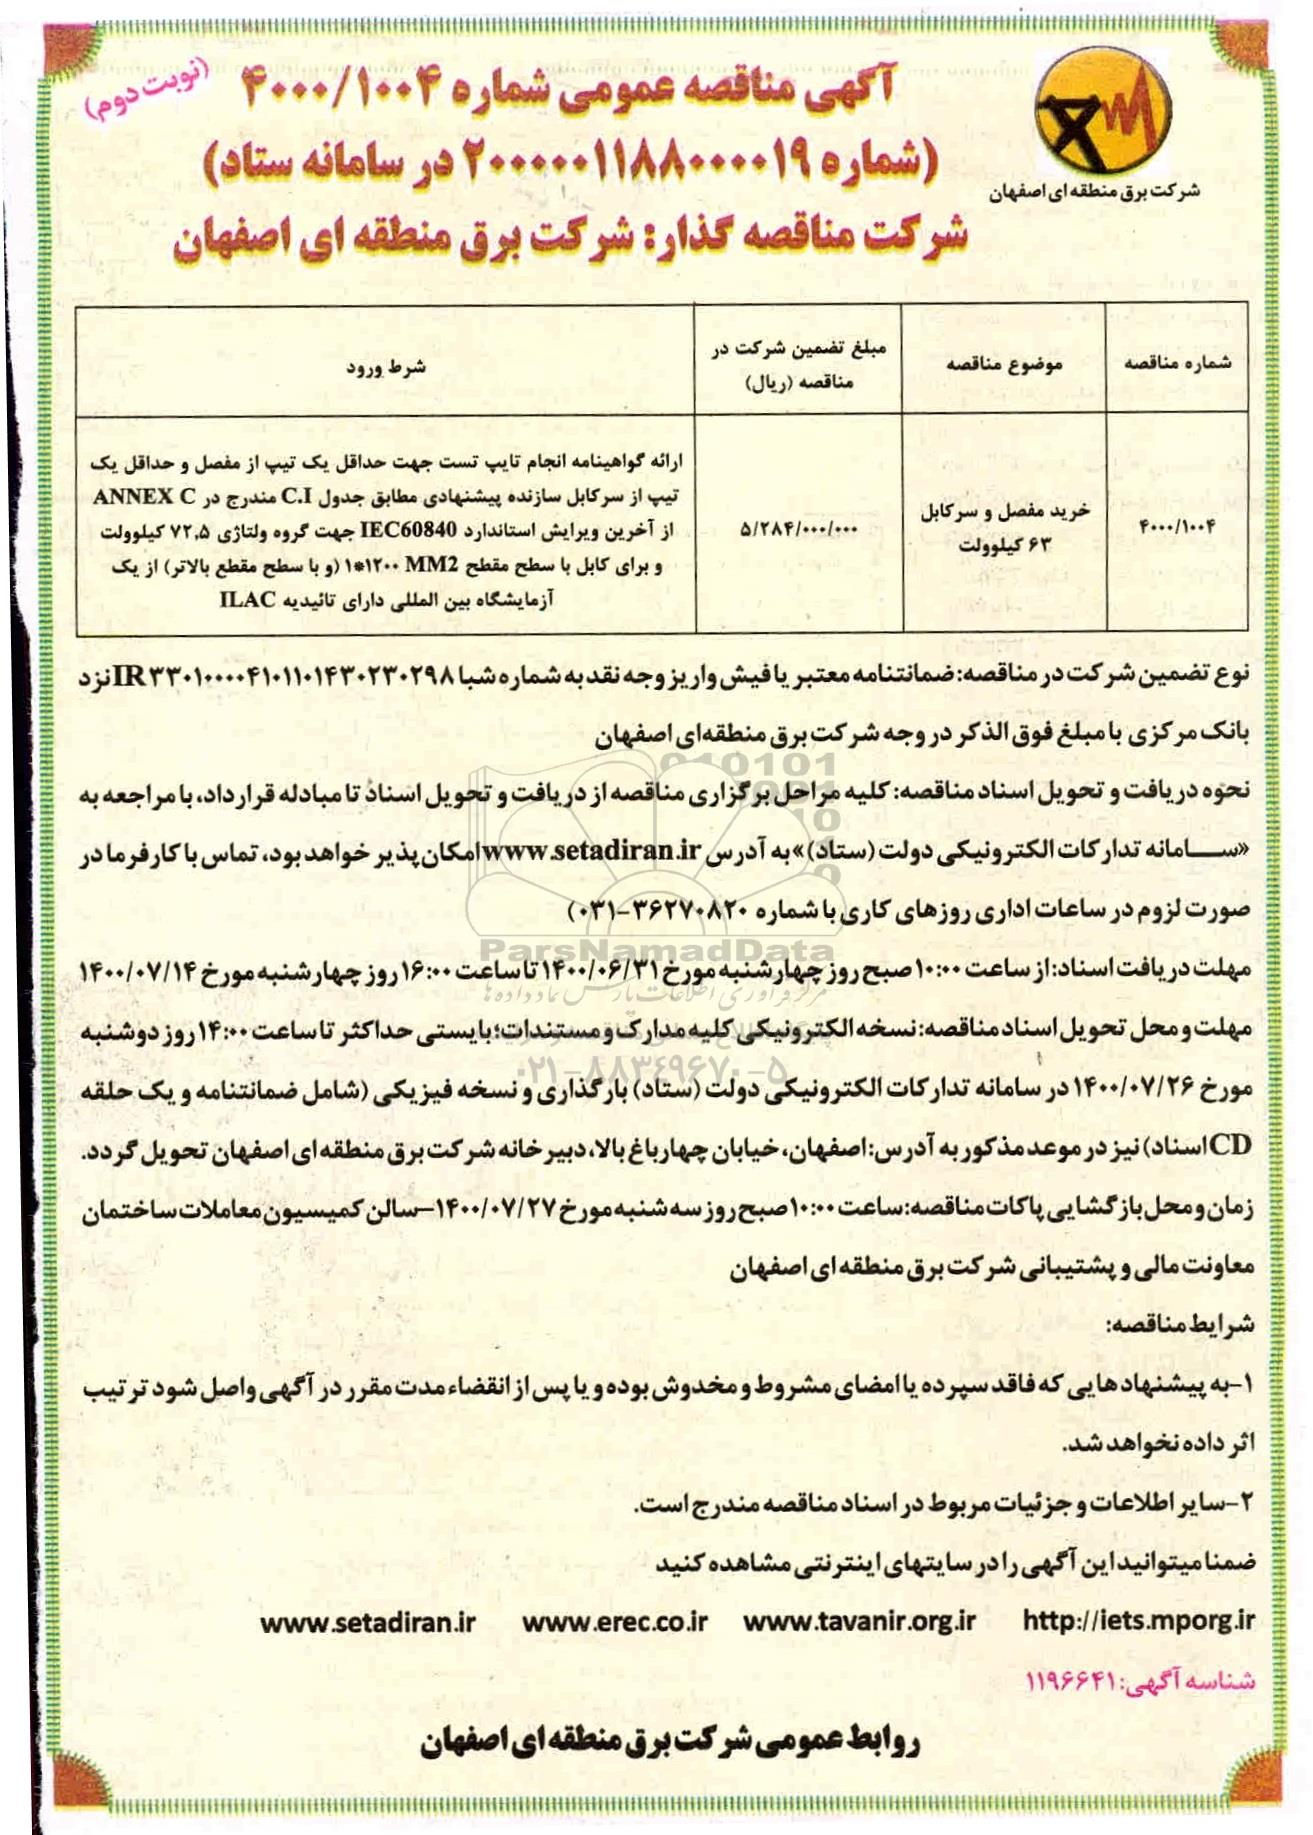 آگهی مناقصه عمومی شماره ۴۰۰۰/۱۰۰۴
(نوبت دوم)
(شماره ۲۰۰۰۰۰۱۱۸۸۰۰۰۰۱۹ در سامانه ستاد)
شرکت برق منطقه ای اصفهان
شرکت مناقصه گذار: شرکت برق منطقه ای اصفهان
شماره مناقصه
موضوع مناقصه
مبلغ تضمین شرکت در
مناقصه (ریال)
شرط ورود
۴۰۰۰/۱۰۰۴
خرید مفصل و سرکابل
۶۳ کیلوولت
۵/۲۸۴/۰۰۰/۰۰۰
ارائه گواهینامه انجام تایپ تست جهت حداقل یک تیپ از مفصل و حداقل یک
تیپ از سرکابل سازنده پیشنهادی مطابق جدول C.I مندرج در ANNEX C
از آخرین ویرایش استاندارد IEC60840 جهت گروه ولتاژی ۷۲,۵ کیلوولت
و برای کابل با سطح مقطع ۱*۱۲۰۰ MM2 (و با سطح مقطع بالاتر) از یک
آزمایشگاه بین المللی دارای تائیدیه ILAC
نوع تضمین شرکت در مناقصه: ضمانتنامه معتبر یا فیش واریز وجه نقد به شماره شبا IR۳۳۰۱۰۰۰۰۴۱۰۱۱۰۱۴۳۰۲۳۰۲۹۸ نزد
بانک مرکزی با مبلغ فوق الذکر در وجه شرکت برق منطقه‌ای اصفهان
نحوه دریافت و تحویل اسناد مناقصه: کلیه مراحل برگزاری مناقصه از دریافت و تحویل اسناد تا مبادله قرارداد، با مراجعه به
«سامانه تدارکات الکترونیکی دولت (ستاد)» به آدرس www.setadiran.ir امکان پذیر خواهد بود، تماس با کارفرما در
صورت لزوم در ساعات اداری روزهای کاری با شماره ۳۶۲۷۰۸۲۰-۰۳۱)
مهلت دریافت اسناد: از ساعت ۱۰:۰۰ صبح روز چهارشنبه مورخ ۱۴۰۰/۰۶/۳۱ تا ساعت ۱۶:۰۰ روز چهارشنبه مورخ ۱۴۰۰/۰۷/۱۴
مهلت و محل تحویل اسناد مناقصه: نسخه الکترونیکی کلیه مدارک و مستندات؛ بایستی حداکثر تا ساعت ۱۴:۰۰ روز دوشنبه
مورخ ۱۴۰۰/۰۷/۲۶ در سامانه تدارکات الکترونیکی دولت (ستاد) بارگذاری و نسخه فیزیکی (شامل ضمانتنامه و یک حلقه
CD اسناد) نیز در موعد مذکور به آدرس: اصفهان، خیابان چهارباغ بالا، دبیرخانه شرکت برق منطقه‌ای اصفهان تحویل گردد.
زمان و محل بازگشایی پاکات مناقصه: ساعت ۱۰:۰۰ صبح روز سه شنبه مورخ ۱۴۰۰/۰۷/۲۷-سالن کمیسیون معاملات ساختمان
معاونت مالی و پشتیبانی شرکت برق منطقه ای اصفهان
شرایط مناقصه:
۱-به پیشنهادهایی که فاقد سپرده یا امضای مشروط و مخدوش بوده و یا پس از انقضاء مدت مقرر در آگهی واصل شود ترتیب
اثر داده نخواهد شد.
۲-سایر اطلاعات و جزئیات مربوط در اسناد مناقصه مندرج است.
ضمنا میتوانید این آگهی را در سایتهای اینترنتی مشاهده کنید
http://iets.mporg.ir www.tavanir.org.ir www.erec.co.ir www.setadiran.ir
شناسه آگهی: ۱۱۹۶۶۴۱
روابط عمومی شرکت برق منطقه ای اصفهان
ParsNamadData
مرکز فرآوری اطلاعات پارس نماد داده ها
۰۲۱-۸۸۳۴۹۶۷۰-۵